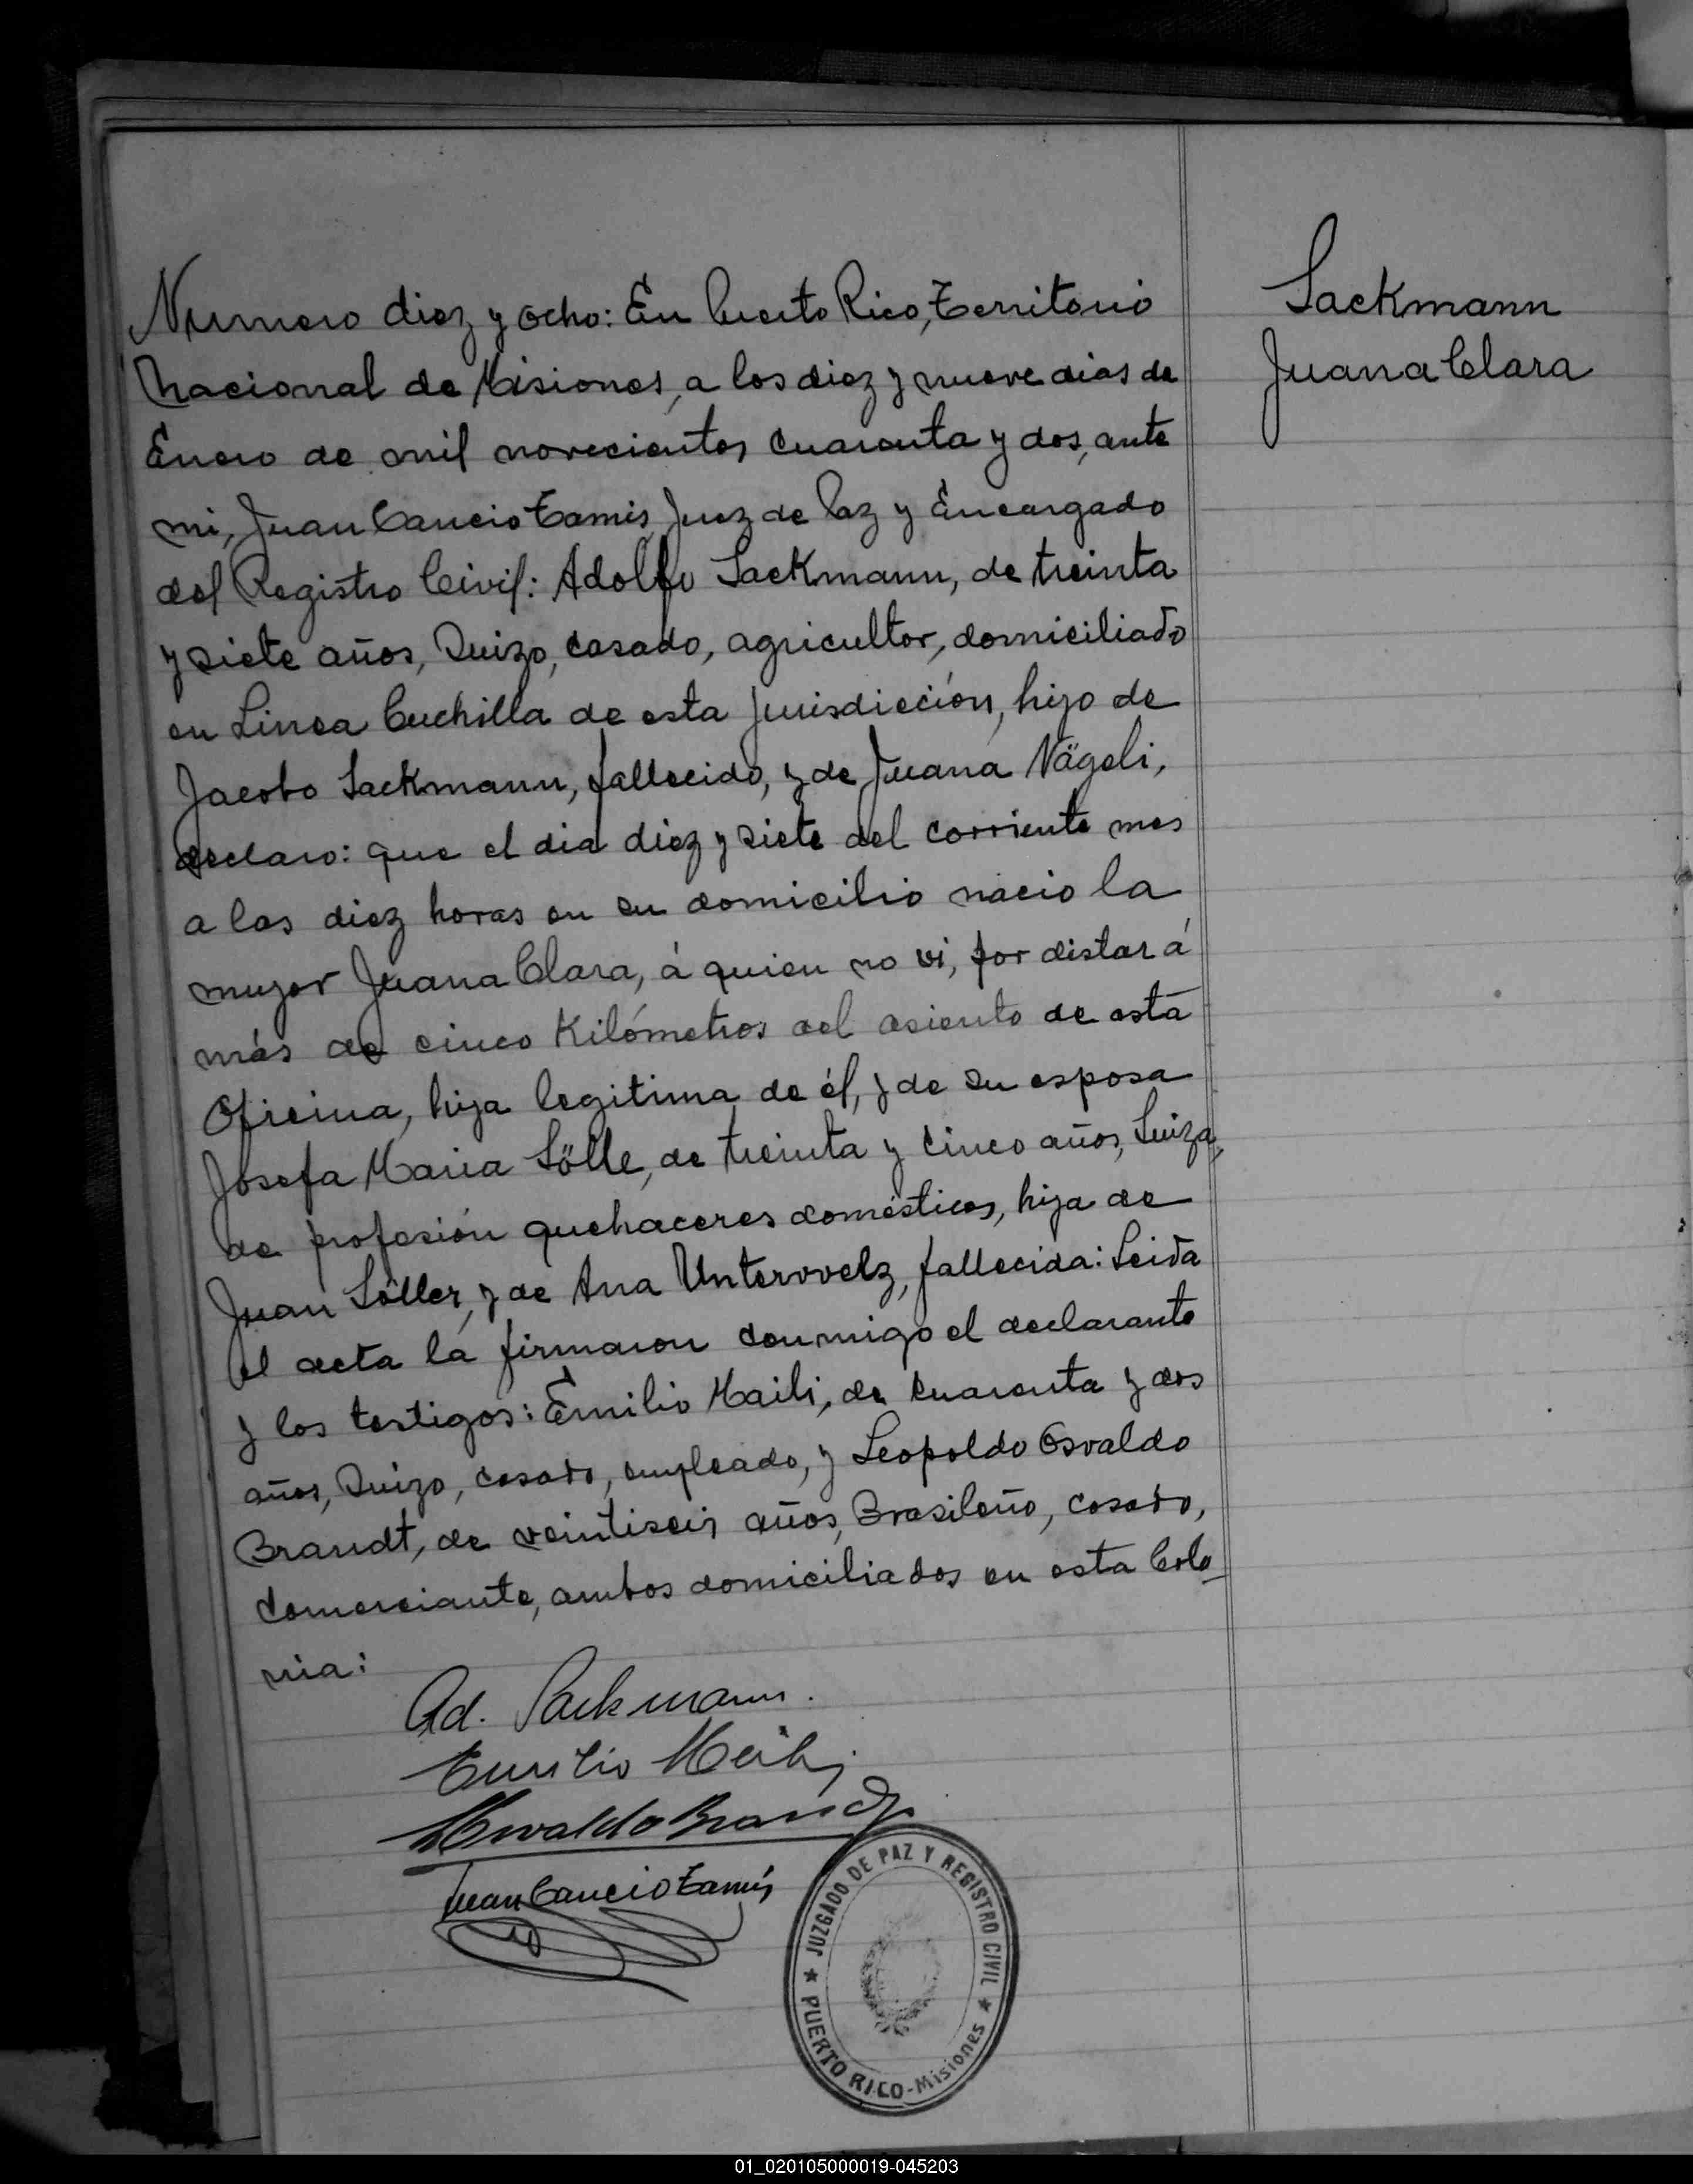 Sackmann
Juana Clara
Numero diez y ocho: En Puerto Rico, Territorio
Nacional de Misiones, a los diez y nueve dias de
Enero de mil novecientos cuarenta y dos, ante
mi, Juan Cancio Tamis, Juez de Paz y Encargado
del Registro Civil: Adolfo Sackmann, de treinta
y siete años, Suizo, casado, agricultor, domiciliado
en Linea Cuchilla de esta jurisdicción, hijo de
Jacobo Sackmann, fallecido, y de Juana Nägeli,
declaro: que el dia diez y siete del corriente mes
a las diez horas en su domicilio nacio la
mujer Juana Clara, á quien no vi, por distar á
más de cinco Kilómetros del asiento de esta
Oficina, hija legitima de él, y de su esposa
Josefa Maria Sölle, de treinta y cinco años, Suiza,
de profesión quehaceres domésticos, hija de
Juan Söller, y de Ana Untervvelz, fallecida: Leida
el acta la firmaron conmigo el declarante
y los testigos: Emilio Maili, de cuarenta y dos
años, Suizo, casado, empleado, y Leopoldo Osvaldo
Brandt, de veintiseis años, Brasileño, casado,
comerciante, ambos domiciliados en esta Colo
nia:
Ad. Sackmann.
Emilio Meili
Oswaldo Brandt
Juan Cancio Tamis
JUZGADO DE PAZ Y REGISTRO CIVIL
PUERTO RICO - Misiones
01_020105000019-045203